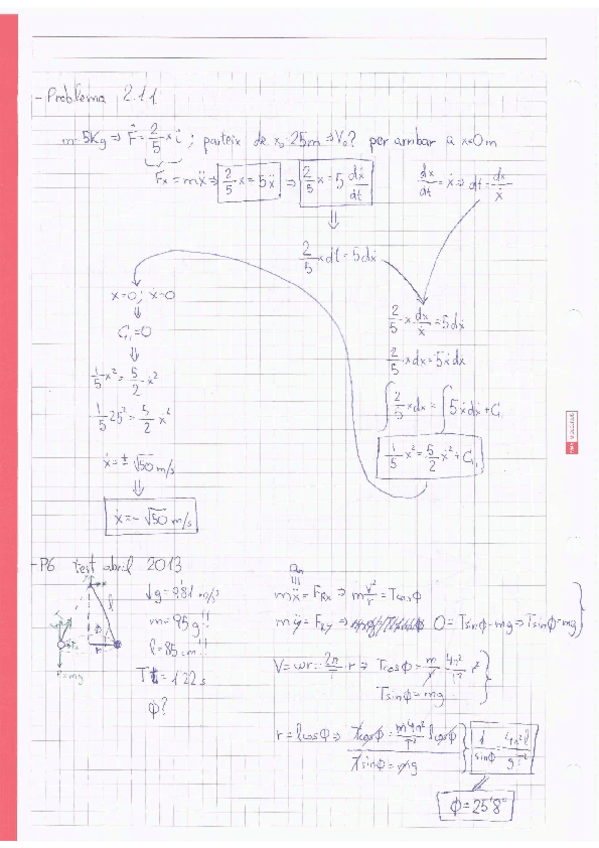 - Problema 2.11
m=5Kg ⇒ F⃗ = 2/5 x i⃗ ; parteix de x₀=25m ⇒ V₀? per arribar a x=0m
Fx = mẍ ⇒ 2/5 x = 5ẍ ⇒ 2/5 x = 5 dẋ/dt
dx/dt = ẋ ⇒ dt = dx/ẋ
2/5 x dt = 5dẋ
2/5 x dx/ẋ = 5dẋ
2/5 x dx = 5ẋdẋ
∫ 2/5 x dx = ∫ 5ẋdẋ + C₁
1/5 x² = 5/2 ẋ² + C₁
x=0; ẋ=0
C₁=0
1/5 x² = 5/2 ẋ²
1/5 25² = 5/2 ẋ²
ẋ = ± √50 m/s
ẋ = - √50 m/s
- P6 test abril 2013
g=9'81 m/s
m=95g!!
l=85cm!!
T=1'22s
ϕ?
l
r
P=mg
an
mẍ = FRx ⇒ m v²/r = Tcosϕ
mÿ = FRy ⇒ 0 = Tsinϕ - mg ⇒ Tsinϕ = mg
V = ωr = 2π/T · r ⇒ Tcosϕ = m/r 4π²/T² r²
Tsinϕ = mg
r = l cosϕ ⇒ Tcosϕ = m4π²/T² l cosϕ
Tsinϕ = mg
1/sinϕ = 4π²l/gT²
ϕ = 25'8°